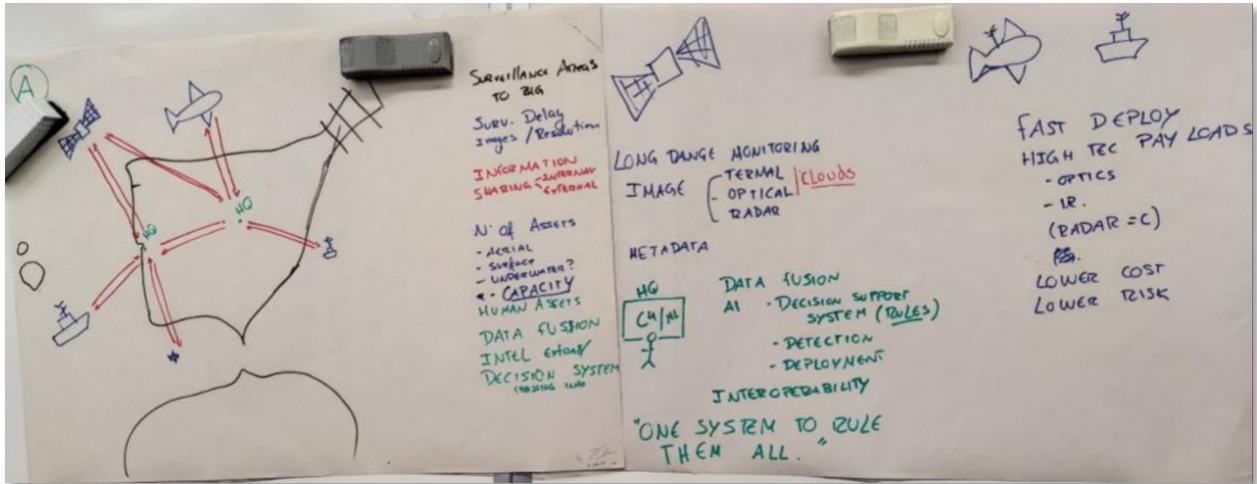 A
HQ
HQ
SURVEILLANCE AREAS
TO BIG
SURV. DELAY
IMAGES / RESOLUTION
INFORMATION
SHARING - INTERNAL
EXTERNAL
Nº OF ASSETS
- AERIAL
- SURFACE
- UNDERWATER?
- CAPACITY
HUMAN ASSETS
DATA FUSSION
INTEL
DECISION SYSTEM
INFO
LONG DANGE MONITORING
IMAGE - TERMAL
- OPTICAL
RADAR
CLOUDS
METADATA
HQ
DATA FUSION
AI - DECISION SUPPORT
SYSTEM (RULES)
- DETECTION
- DEPLOYMENT
INTEROPERABILITY
"ONE SYSTEM TO RULE
THEM ALL."
FAST DEPLOY
HIGH TEC PAY LOADS
- OPTICS
- I.R.
(RADAR = C)
LOWER COST
LOWER RISK